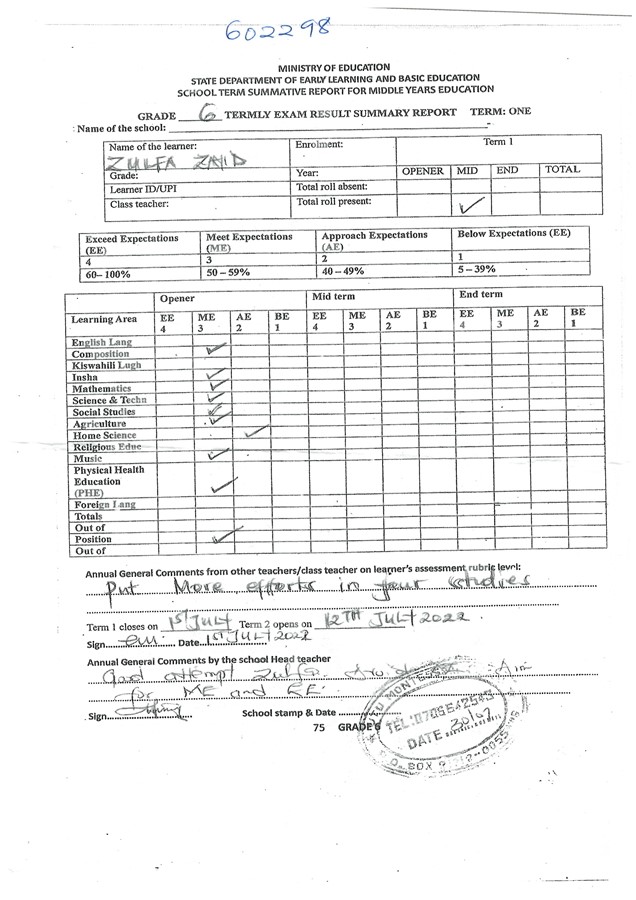 602298
MINISTRY OF EDUCATION
STATE DEPARTMENT OF EARLY LEARNING AND BASIC EDUCATION
SCHOOL TERM SUMMATIVE REPORT FOR MIDDLE YEARS EDUCATION
GRADE 6 TERMLY EXAM RESULT SUMMARY REPORT TERM: ONE
Name of the school:
Name of the learner: Enrolment: Term 1
ZULFA ZAID
Grade: Year: OPENER MID END TOTAL
Learner ID/UPI Total roll absent:
Class teacher: Total roll present: ✓
Exceed Expectations (EE) Meet Expectations (ME) Approach Expectations (AE) Below Expectations (EE)
4 3 2 1
60–100% 50–59% 40–49% 5–39%
Opener Mid term End term
Learning Area EE 4 ME 3 AE 2 BE 1 EE 4 ME 3 AE 2 BE 1 EE 4 ME 3 AE 2 BE 1
English Lang
Composition ✓
Kiswahili Lugh
Insha ✓
Mathematics ✓
Science & Techn ✓
Social Studies ✓
Agriculture ✓
Home Science ✓
Religious Educ
Music ✓
Physical Health
Education
(PHE) ✓
Foreign Lang
Totals
Out of
Position ✓
Out of
Annual General Comments from other teachers/class teacher on learner's assessment rubric level:
Put More efforts in your studies
Term 1 closes on 1ST JULY Term 2 opens on 12TH JULY 2022
Sign Date 1ST JULY 2022
Annual General Comments by the school Head teacher
Good attempt Zulfa. Aim
for ME and EE.
Sign School stamp & Date
75 GRADE 6
TEL:
DATE
P.O. BOX